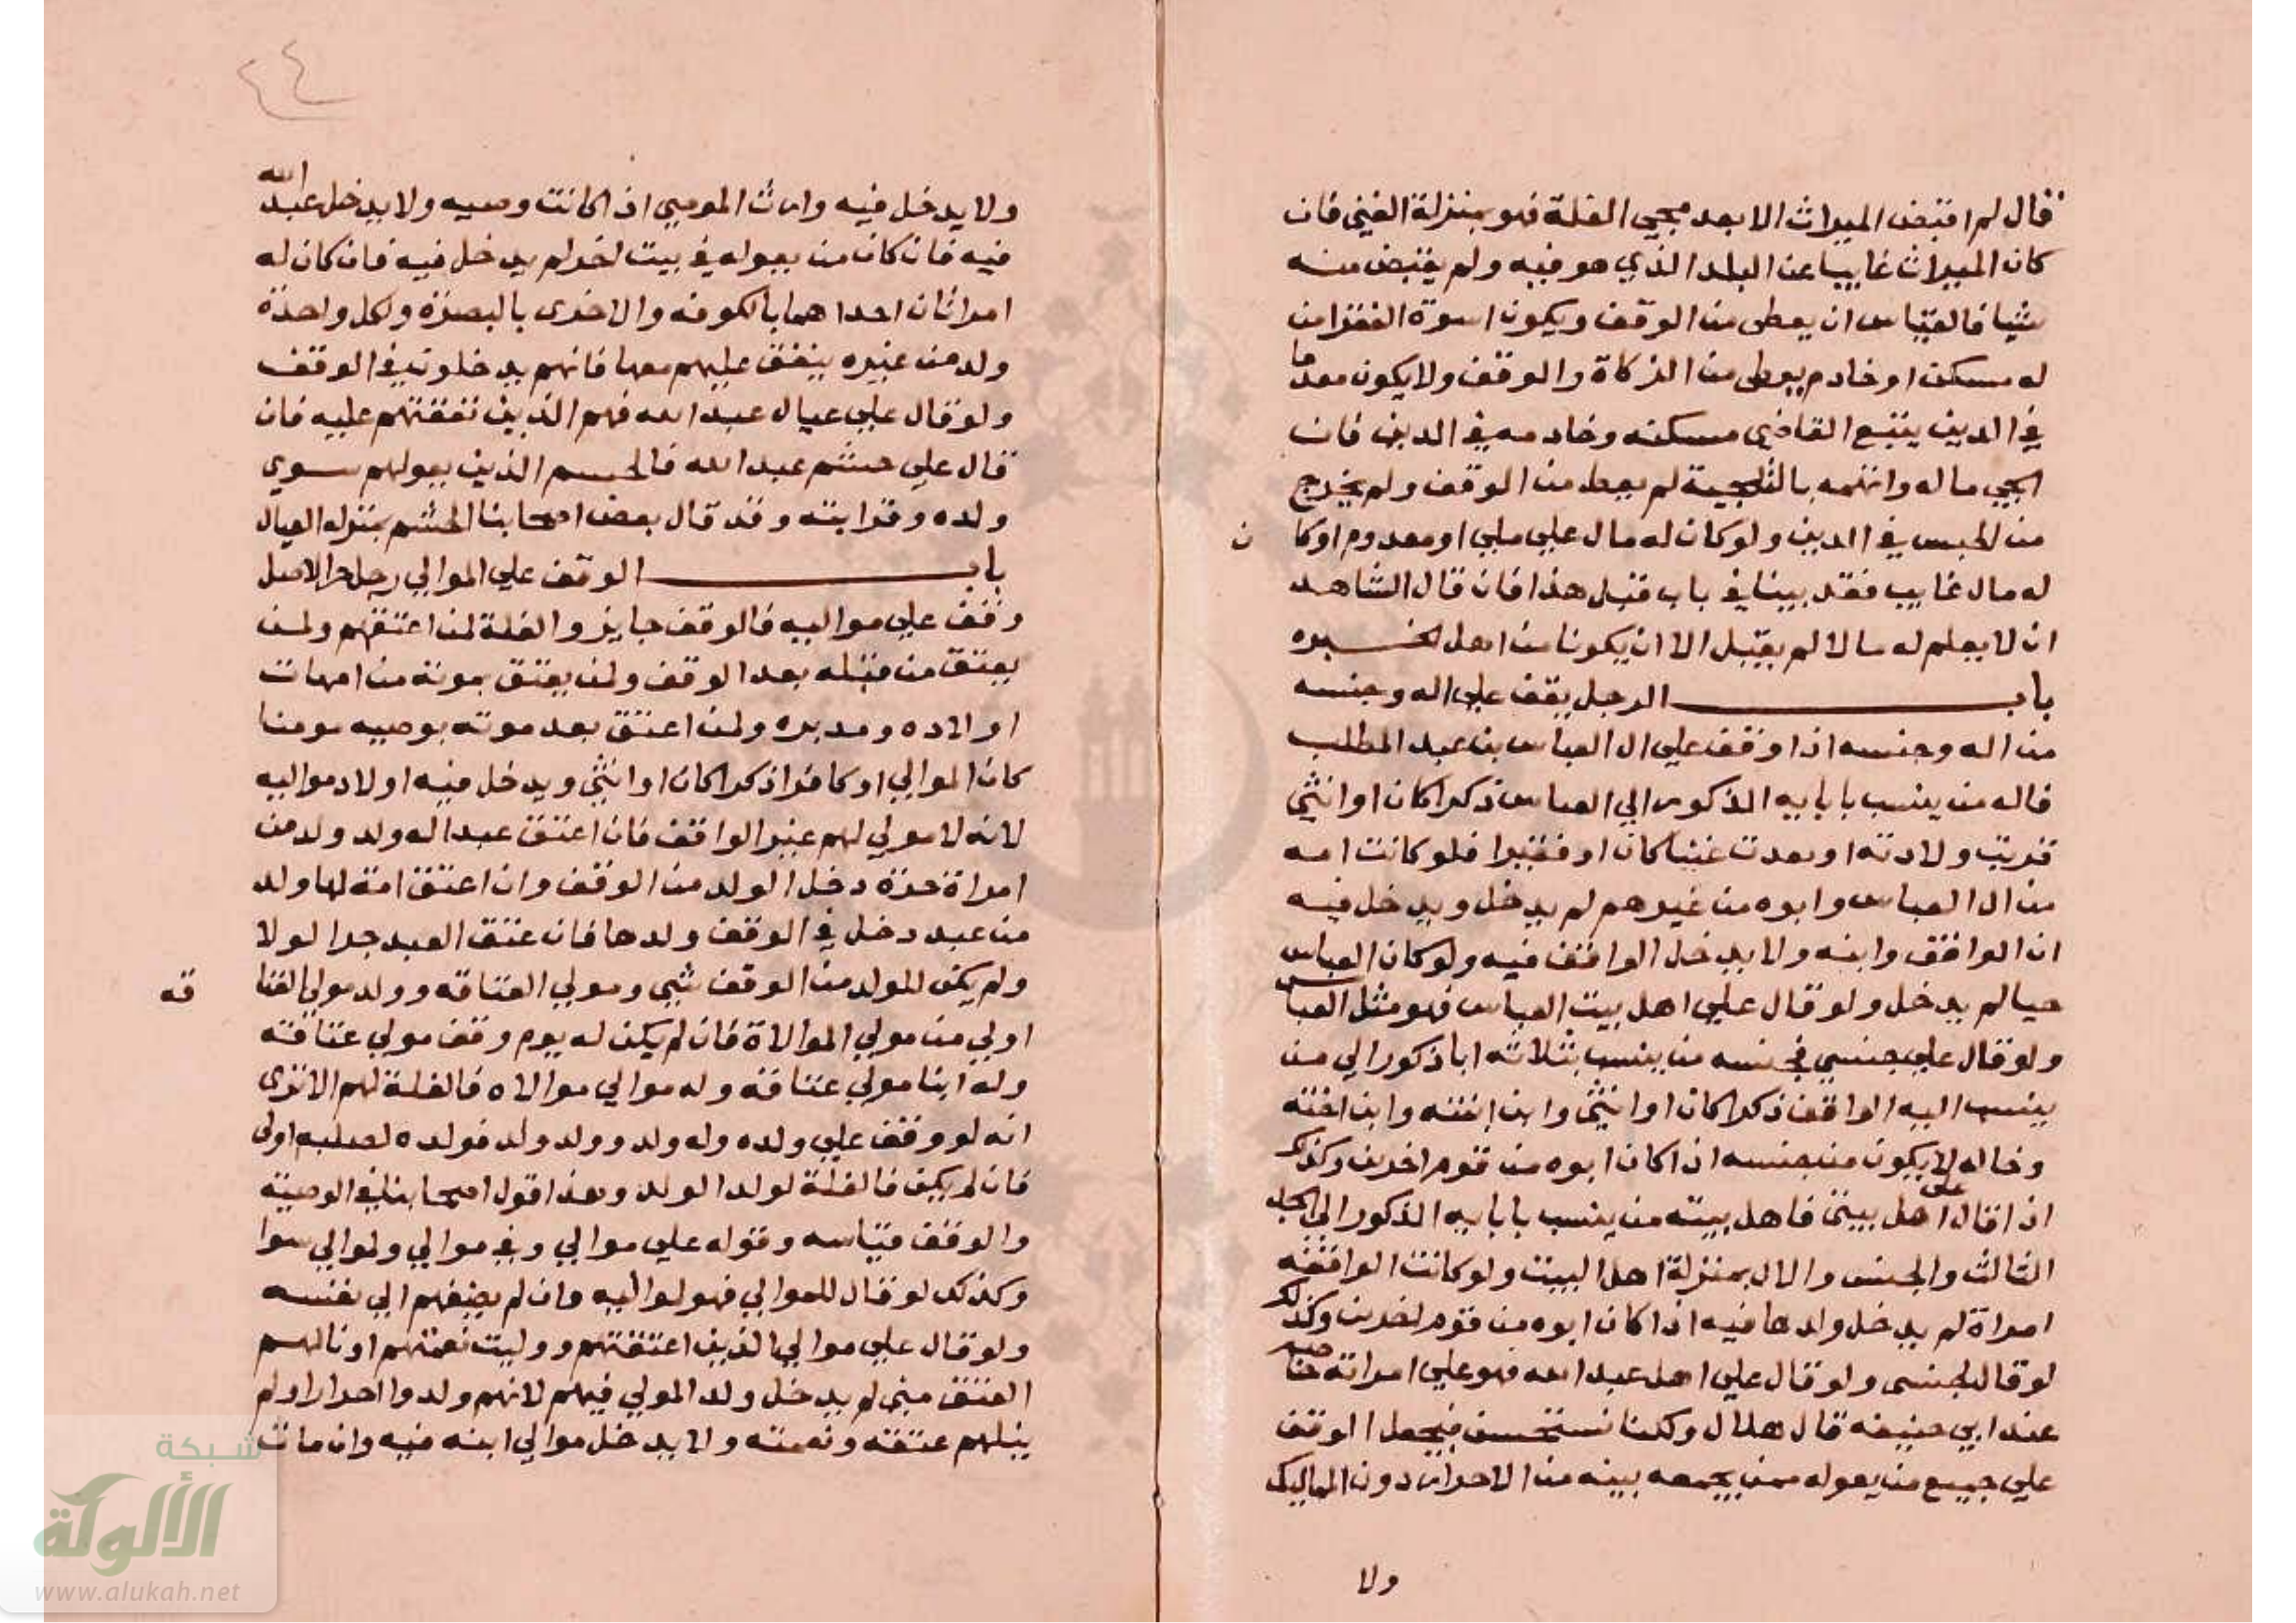 قال لم اقبض الميراث الا بعد مجي الغلة فهو بمنزلة الغني فان
كان الميراث غايبا عن البلد الذي هو فيه ولم يقبض منه
شيا فالقياس ان يعطى من الوقف ويكون اسوة الفقرا من
له مسكن او خادم يعطى من الزكاة والوقف ولا يكون معدما
في الدين يتبع القاضي مسكنه وخادمه في الدين فان
الجي ماله واتهمه بالتلجية لم يعط من الوقف ولم يخرج
من الحبس في الدين ولو كان له مال علي ملي او معدوم او كان
له مال غايب فقد بينا في باب قبل هذا فان قال الشاهد
ان لا يعلم له مالا لم يقبل الا ان يكونا من اهل الخبره
باب الرجل يقف علي اله وجنسه
من اله وجنسه اذا وقف علي ال العباس بن عبد المطلب
فاله من ينسب بابايه الذكور الي العباس ذكرا كان او انثى
قربت ولادته او بعدت غنيا كان او فقيرا فلو كانت امه
من ال العباس وابوه من غيرهم لم يدخل ويدخل فيه
ان الواقف وابنه ولا يدخل الواقف فيه ولو كان العباس
حيا لم يدخل ولو قال علي اهل بيت العباس فهو مثل العباس
ولو قال علي جنسي فجنسه من ينسب بثلاثه ابا ذكور الي من
ينسب اليه الواقف ذكرا كان او انثى وابن ابنته وابن اخته
وخاله لا يكون من جنسه اذا كان ابوه من قوم اخرين وكذلك
اذا قال على اهل بيتى فاهل بيته من ينسب بابايه الذكور الي الجد
الثالث والجنس والال بمنزلة اهل البيت ولو كانت الواقفه
امراة لم يدخل ولدها فيه اذا كان ابوه من قوم اخرين وكذلك
لو قال لجنسى ولو قال علي اهل عبد الله فهو علي امراته خاصه
عند ابي حنيفه قال هلال ولكنا نستحسن فيجعل الوقف
علي جميع من يعوله ممن يجمعه بيته من الاحرار دون المماليك
ولا
٤٤
ولا يدخل فيه وارث الموصي اذا كانت وصيه ولا يدخل عبد الله
فيه فان كان من يعوله في بيت اخر لم يدخل فيه فان كان له
امراتان احداهما بالكوفه والاخرى بالبصرة ولكل واحدة
ولد من غيره ينفق عليهم معها فانهم يدخلون في الوقف
ولو قال علي عيال عبد الله فهم الذين نفقتهم عليه فان
قال علي حشم عبد الله فالحشم الذين يعولهم سوي
ولده وقرابته وقد قال بعض اصحابنا الحشم بمنزله العيال
باب الوقف علي الموالي رجل حر الاصل
وقف علي مواليه فالوقف جايز والغلة لمن اعتقهم ولمن
يعتق من قبله بعد الوقف ولمن يعتق بموته من امهات
اولاده ومدبره ولمن اعتق بعد موته بوصيه مومنا
كان الموالي او كافرا ذكرا كان او انثى ويدخل فيه اولاد مواليه
لانه لا مولي لهم غير الواقف فان اعتق عبدا له ولد ولد من
امراة حرة دخل الولد من الوقف وان اعتق امة لها ولد
من عبد دخل في الوقف ولدها فان عتق العبد جر الولا
ولم يكن للولد من الوقف شي ومولي العتاقه وولد مولي العتاقه
اولي من مولي الموالاة فان لم يكن له يوم وقف مولي عتاقته
وله ابنا مولي عتاقته وله موالي موالاه فالغلة لهم الا ترى
انه لو وقف علي ولده وله ولد وولد ولد فولده لصلبه اولى
فان لم يكن فالغلة لولد الولد وهذا قول اصحابنا في الوصيه
والوقف قياسه وقوله علي موالي وفي موالي ولموالي سوا
وكذلك لو قال للموالي فهو لمواليه وان لم يضفهم الي نفسه
ولو قال علي موالي الذين اعتقتهم ووليت نعمتهم او نالهم
العتق مني لم يدخل ولد المولي فيهم لانهم ولدوا احرارا ولم
ينلهم عتقه ونعمته ولا يدخل موالي ابنه فيه وان مات
شبكة
الألوكة
www.alukah.net